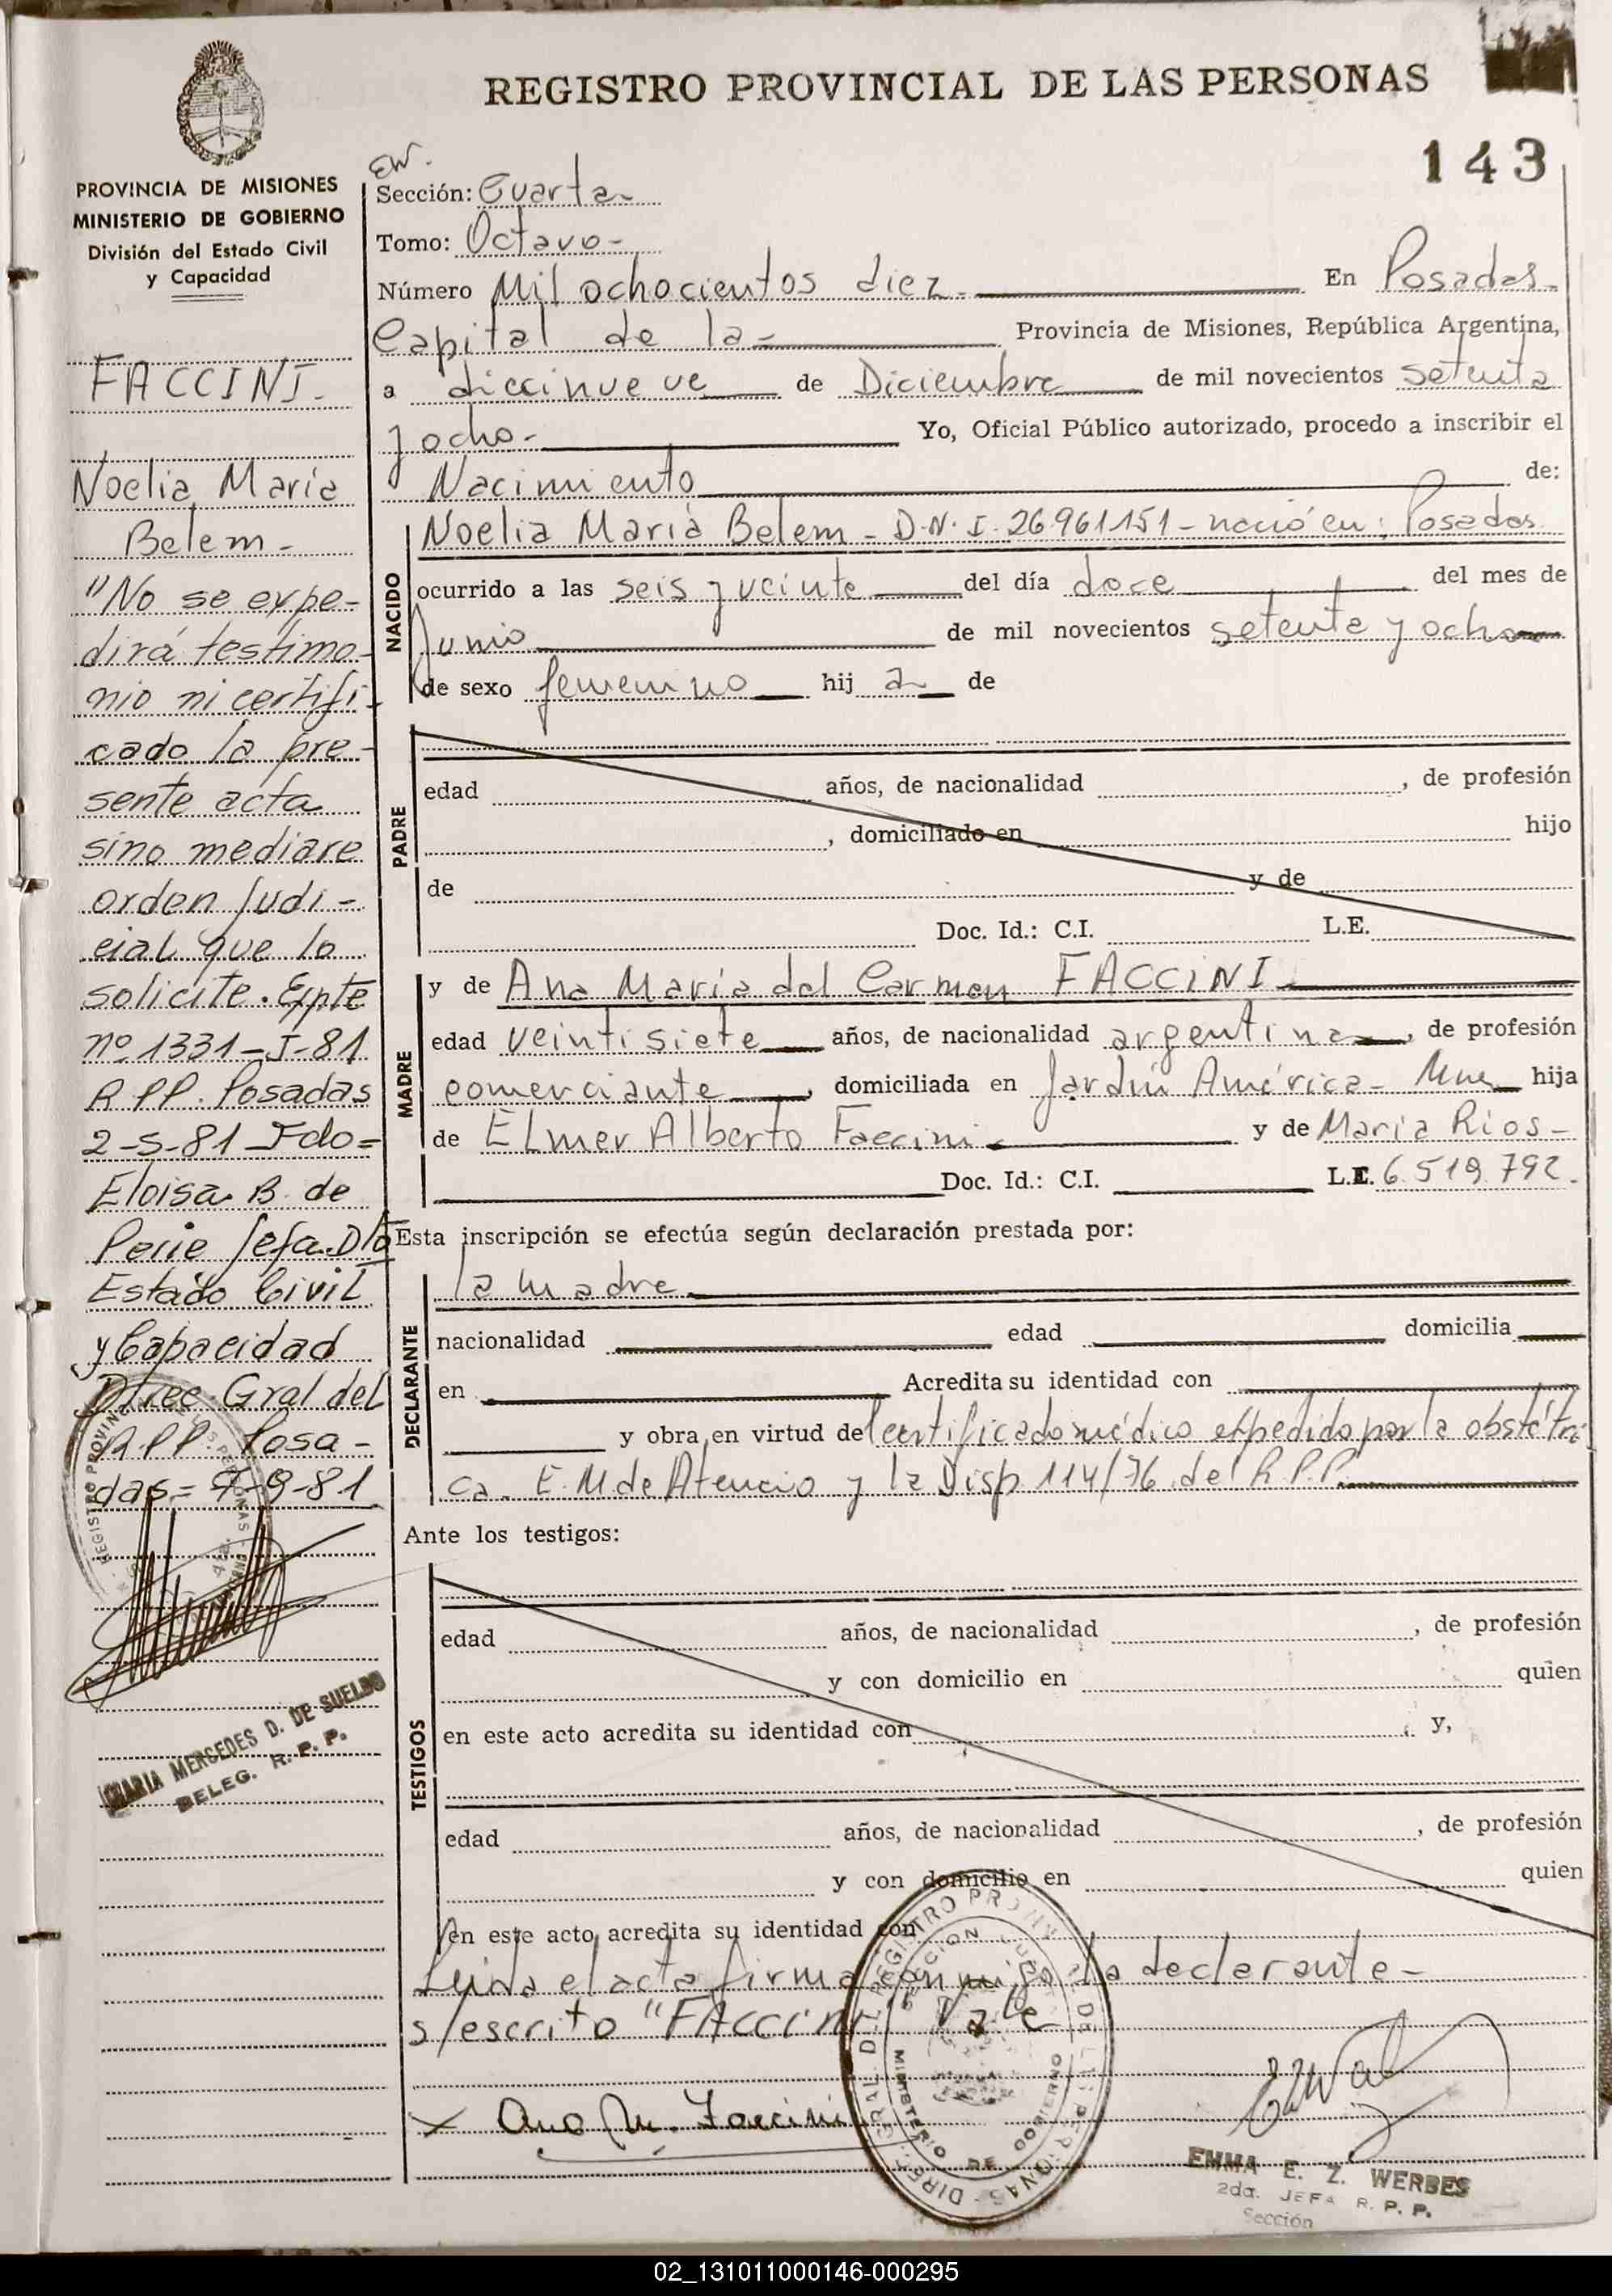 REGISTRO PROVINCIAL DE LAS PERSONAS
143
PROVINCIA DE MISIONES
MINISTERIO DE GOBIERNO
División del Estado Civil
y Capacidad
FACCINI.
Noelia María
Belem -
"No se expe-
dirá testimo-
nio ni certifi-
cado la pre-
sente acta
sino mediare
orden judi-
cial que lo
solicite. Expte
nº 1331-I-81
R.P.P. Posadas
2-5-81 Fdo=
Eloisa B. de
Jefa. Dto
Estado Civil
y Capacidad
Direc. Gral del
R.P.P. Posa-
das= 7-9-81
MARIA MERCEDES D. DE SUELDO
DELEG. R. P. P.
EW.
Sección: Cuarta
Tomo: Octavo-
Número Mil ochocientos diez. En Posadas.
Capital de la- Provincia de Misiones, República Argentina,
a diecinueve de Diciembre de mil novecientos setenta
y ocho- Yo, Oficial Público autorizado, procedo a inscribir el
Nacimiento de:
NACIDO
Noelia María Belem - D.N.I. 26.961.151 - nació en: Posadas
ocurrido a las seis y veinte del día doce del mes de
Junio de mil novecientos setenta y ocho
de sexo femenino hij a de
PADRE
edad años, de nacionalidad , de profesión
, domiciliado en hijo
de y de
Doc. Id.: C.I. L.E.
MADRE
y de Ana María del Carmen FACCINI
edad veintisiete años, de nacionalidad argentina , de profesión
comerciante , domiciliada en Jardín América- Mnes hija
de Elmer Alberto Faccini y de María Rios-
Doc. Id.: C.I. L.E. 6.519.792.
Esta inscripción se efectúa según declaración prestada por:
DECLARANTE
la madre
nacionalidad edad domicilia
en Acredita su identidad con
y obra en virtud del certificado médico expedido por la obstétri-
ca. E. M de Atencio y la Disp 114/76 del R.P.P.
Ante los testigos:
TESTIGOS
edad años, de nacionalidad , de profesión
y con domicilio en quien
en este acto acredita su identidad con y,
edad años, de nacionalidad , de profesión
y con domicilio en quien
en este acto acredita su identidad con
Leida el acta firma conmigo la declarante-
s/escrito "FACCINI" Vale
Ana M. Faccini
DIREC. GRAL. DEL REGISTRO PROVINCIAL DE LAS PERSONAS
MINISTERIO DE GOBIERNO
EMMA E. Z. WERBES
2da. JEFA R. P. P.
Sección
02_131011000146-000295